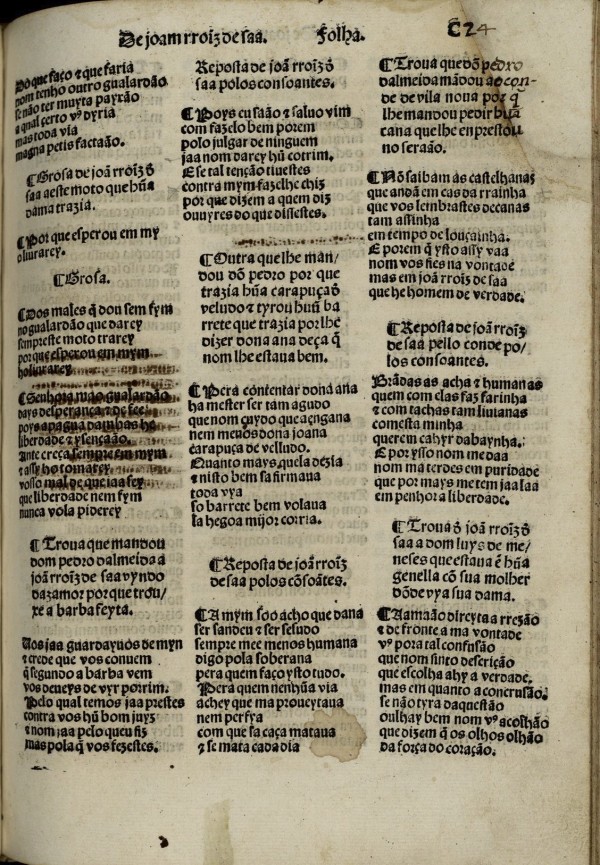 De joam rroīz de saa. Folha. C24
Do que faço ⁊ que faria
nom tenho outro gualardão
se não ter muyta payxão
a qual certo vꝰ dyria
mas toda via
magna petis factaão.
¶ Grosa de joã rroīz đ
saa a este moto que hũa
dama trazia.
¶ Por que esperou em my
o liurarey.
¶ Grosa.
¶ Dos males q̄ dou sem fym
no gualardão que darey
sempre este moto trarey
por que esperou em mym
ho liurarey
¶ Senhora mao gualardão
days desperança ⁊ de fee
liberdade ⁊ ysençaão.
Ante creça sempre em mym
⁊ assy ho tomarey
vosso mal de que jaa sey
que liberdade nem fym
nunca vola piderey
¶ Troua que mandou
dom pedro dalmeida a
joãm rroīz de saa vyndo
dazamor por que trou/
xe a barba feyta.
Uos jaa guardayuos de myn
⁊ crede que vos conuem
q̄ segundo a barba vem
vos deueys de vyr porim.
Pelo qual temos jaa prestes
contra vos hũ bom juyz
⁊ nom jaa pelo que u fiz
mas pola q̄ vos fezestes.
Reposta de joã rroīz đ
saa polos consoantes.
¶ Poys eu saão ⁊ saluo vim
com fazelo bem porem
polo julgar de ninguem
jaa nom darey hũ cotrim.
E se tal tenção tiuestes
contra mym fazelhe chiz
por que dizem a quem diz
ouuyres do que dissestes.
¶ Outra que lhe man/
dou dõ pedro por que
trazia hũa carapuça đ
veludo ⁊ tyrou hũũ ba
rrete que trazia por lhe
dizer dona ana deça q̄
nom lhe estaua bem.
¶ Pera contentar dona ana
ha mester ser tam agudo
que nom cuydo que a engana
nem menos dona joana
carapuça de velludo.
Quanto mays que la dezia
⁊ nisto bem sa firmaua
toda vya
so barrete bem volaua
la hegoa mijor corria.
¶ Reposta de joã rroīz
de saa polos cõsoãtes.
¶ A mym soo acho que dana
ser sandeu ⁊ ser sesudo
sempre mee menos humana
digo pola soberana
pera quem faço ysto tudo.
Pera quem nenhũa via
achey que ma proueytaua
nem perfya
com que sa caça mataua
⁊ se mata cada dia
¶ Troua que dõ pedro
dalmeida mãdou ao con-
de de vila noua por q̄
lhe mandou pedir hũa
cana que lhe enprestou
no seraão.
¶ Nõ saibam as castelhanas
que andã em cas da rrainha
que vos lembrastes de canas
tam assinha
em tempo de louçainha.
E porem q̄ ysto assy vaa
nom vos fies na vontade
mas em joã rroīz de saa
que he homem de verdade.
¶ Reposta de joã rroīz
de saa pello conde po/
los consoantes.
Bradas as acha ⁊ humanas
quem com elas faz farinha
⁊ com tachas tam liuianas
comesta minha
querem cahyr da baynha.
E por ysso nom me daa
nom ma terdes em puridade
que por mays me tem jaa laa
em penhor a liberdade.
¶ Troua đ joã rroīz đ
saa a dom luys de me/
neses que estaua ē hũa
genella cõ sua molher
dõde vya sua dama.
¶ A amaão direyta a rrezão
⁊ de fronte a ma vontade
vꝰ pora tal confusão
que nom sinto descrição
que escolha ahy a verdade.
mas em quanto a concrusão
se não tyra da questão
oulhay bem nom vꝰ acolhão
que dizem q̄ os olhos olhão
da força do coração.